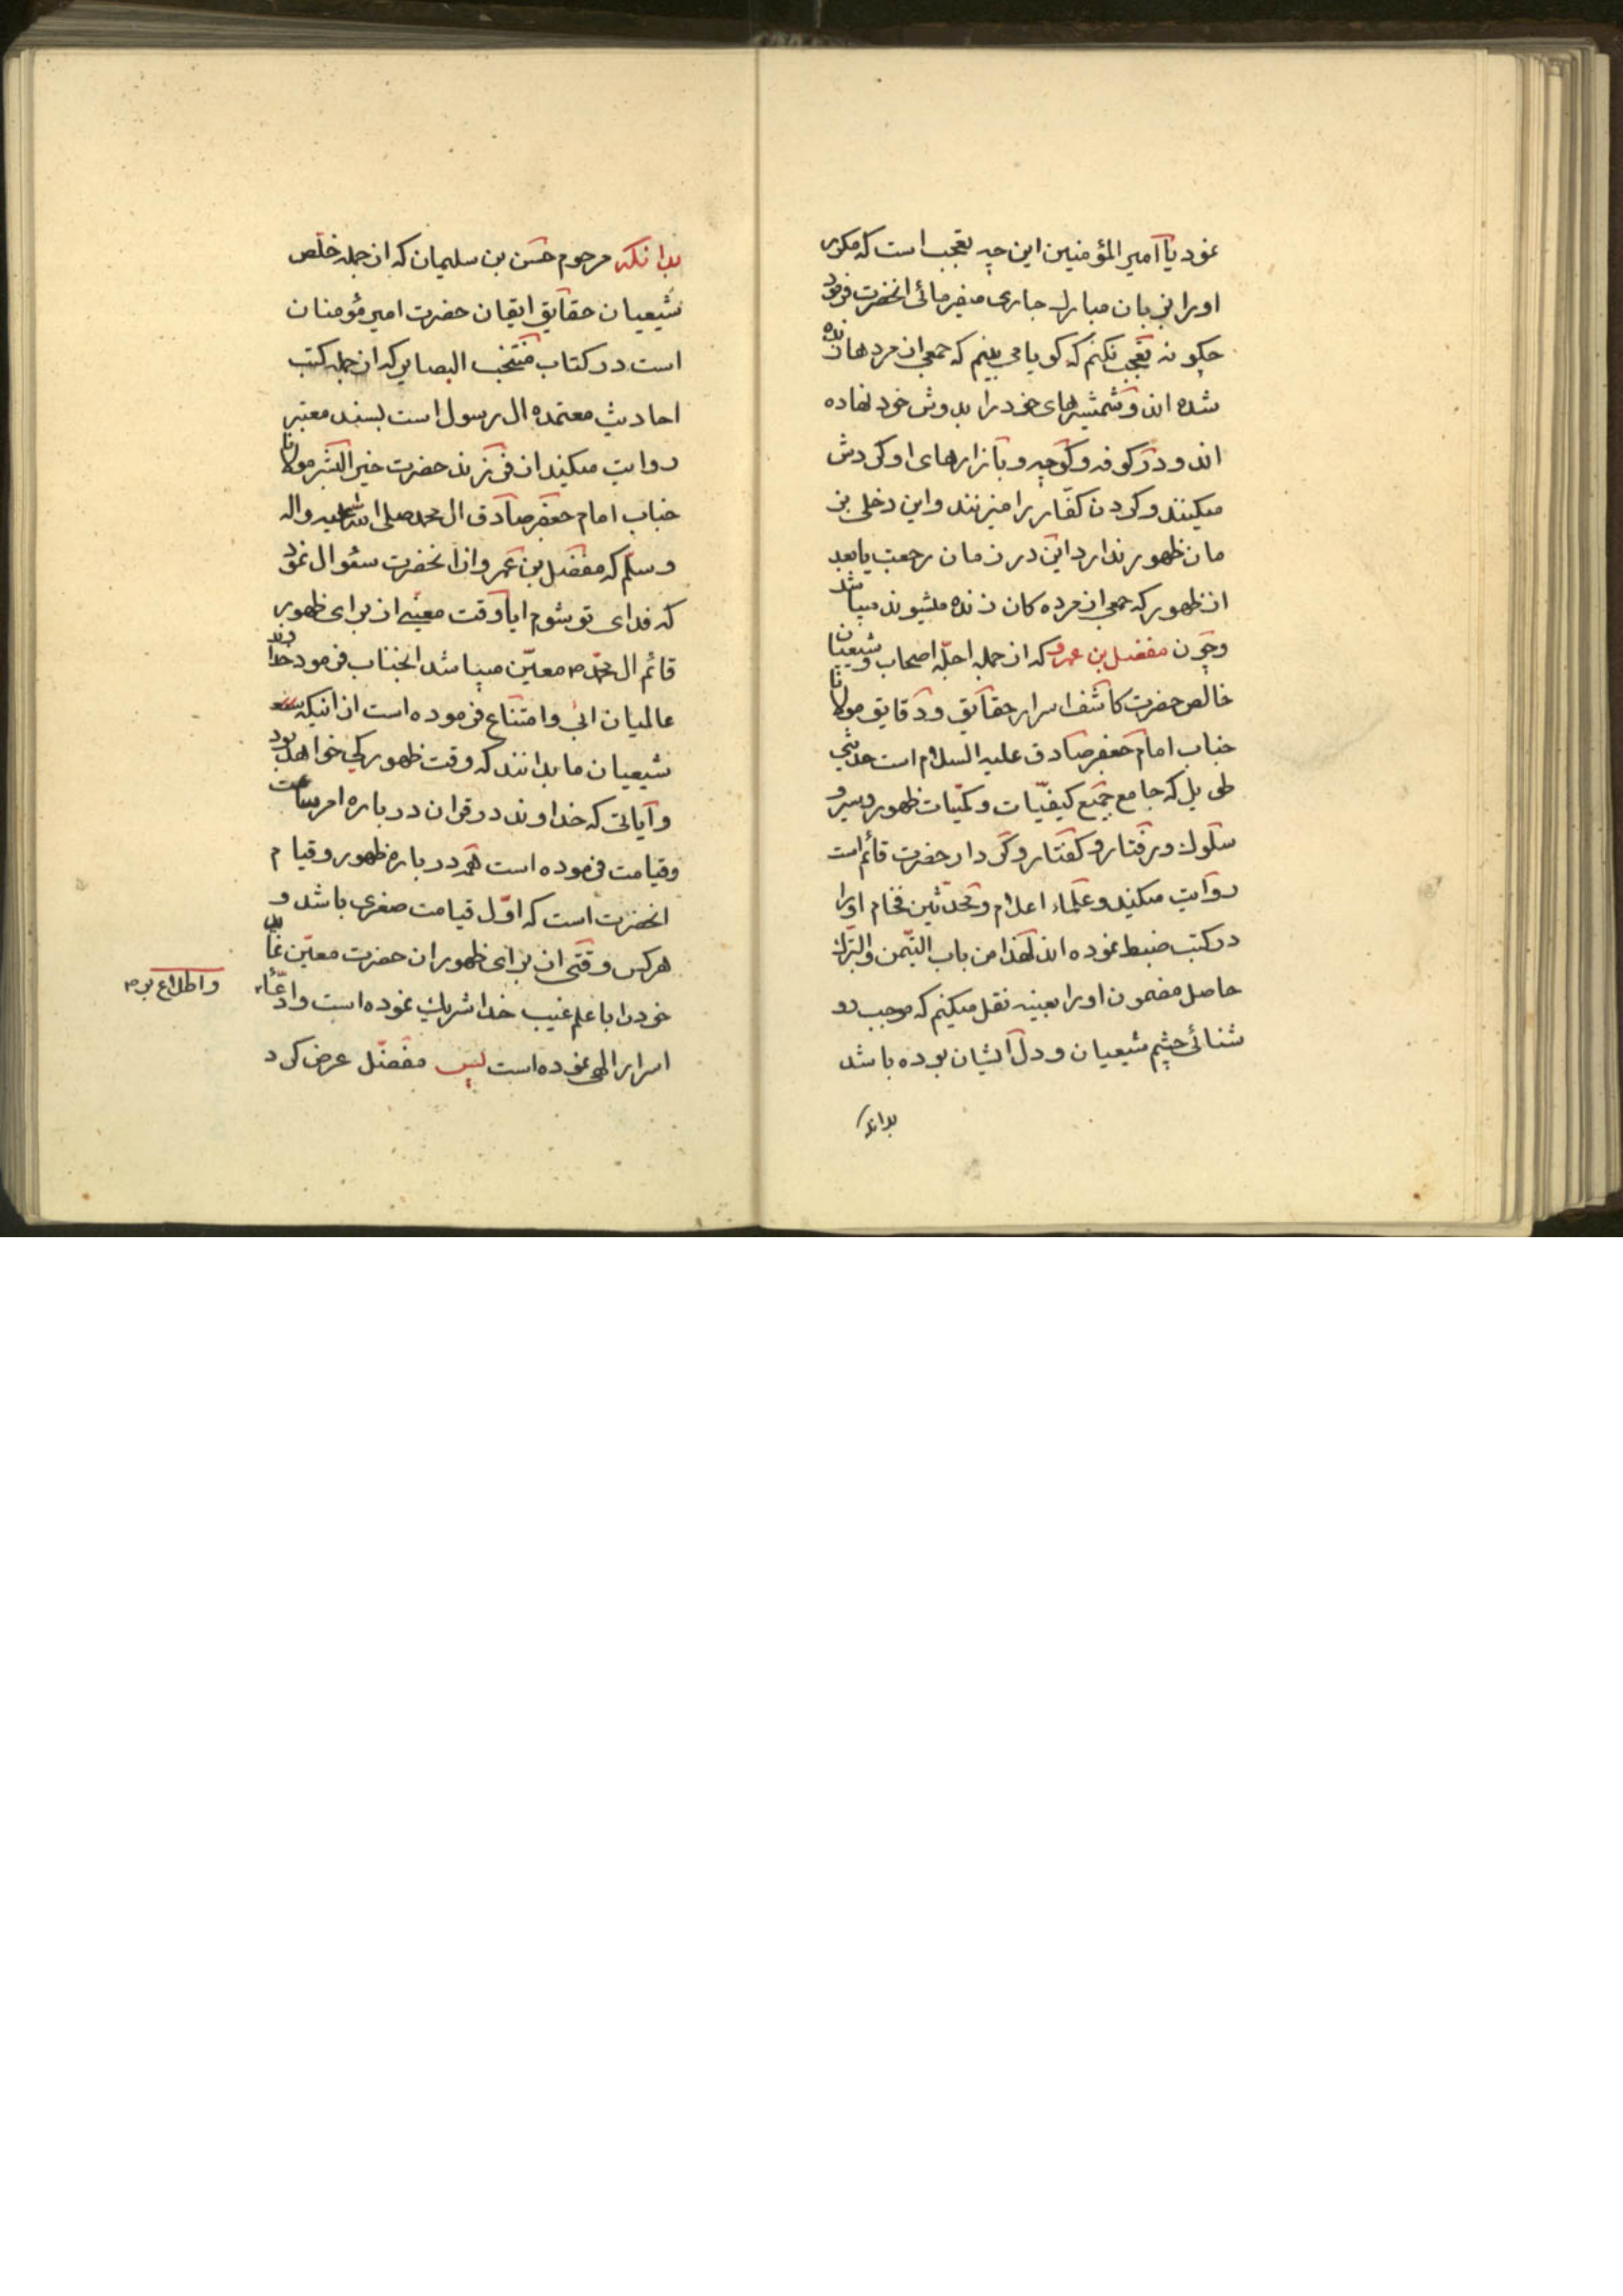 نمود یا امیر المؤمنین این چه تعجب است که مکرر
او را بزبان مبارک جاری میفرمائی انحضرت فرمود
چکونه تعجب نکنم که کویا می بینم که جمعی از مردهای زنده
شده اند و شمشیرهای خود را بدوش خود نهاده
اند و در کوفه و کوچه و بازارهای او کردش
میکنند و کردن کفار را میزنند و این دخلی بز
مان ظهور ندارد این در زمان رجعت یا بعد
از ظهور که جمعی از مرده کان زنده میشوند میباشد
و چون مفضل بن عمرو که از جمله اجله اصحاب و شیعیان
خالص حضرت کاشف اسرار حقایق و دقایق مولانا
جناب امام جعفر صادق علیه السلام است حدیثی
طویل که جامع جمیع کیفیات و کمیات ظهور و سیر و
سلوک و رفتار و کفتار و کردار حضرت قائم است
روایت میکند و علماء اعلام و محدثین فخام او را
در کتب ضبط نموده اند لهذا من باب التیمن و التبرک
حاصل مضمون او را بعینه نقل میکنم که موجب رو
شنائی چشم شیعیان و دل ایشان بوده باشد
بدانکه
بدانکه مرحوم حسن بن سلیمان که از جمله خلص
شیعیان حقایق ایقان حضرت امیر مؤمنان
است در کتاب منتخب البصایر که از جمله کتب
احادیث معتمده ال رسول است بسند معتبر
روایت میکند از فرزند حضرت خیر البشر مولانا
جناب امام جعفر صادق ال محمد صلی الله علیه واله
وسلم که مفضل بن عمرو از انحضرت سئوال نمود
که فدای تو شوم ایا وقت معینی از برای ظهور
قائم ال محمد ص معین میباشد انجناب فرمود خداوند
عالمیان ابی و امتناع فرموده است از اینکه
شیعیان ما بدانند که وقت ظهور کی خواهد بود
و آیاتی که خداوند در قران در باره امر ساعت
و قیامت فرموده است همه در باره ظهور و قیام
انحضرت است که اول قیامت صغری باشد و
هر کس وقتی از برای ظهور ان حضرت معین نماید
خود را با علم غیب خدا شریک نموده است و ادعاء
واطلاع بر ص
اسرار الهی نموده است پس مفضل عرض کرد